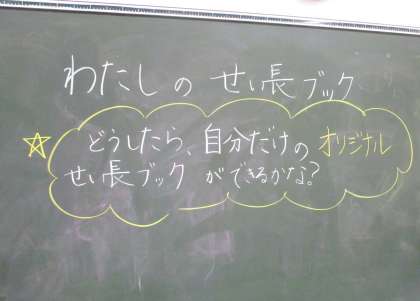 わたしの せい長ブック
どうしたら、自分だけの オリジナル
せい長ブック ができるかな?